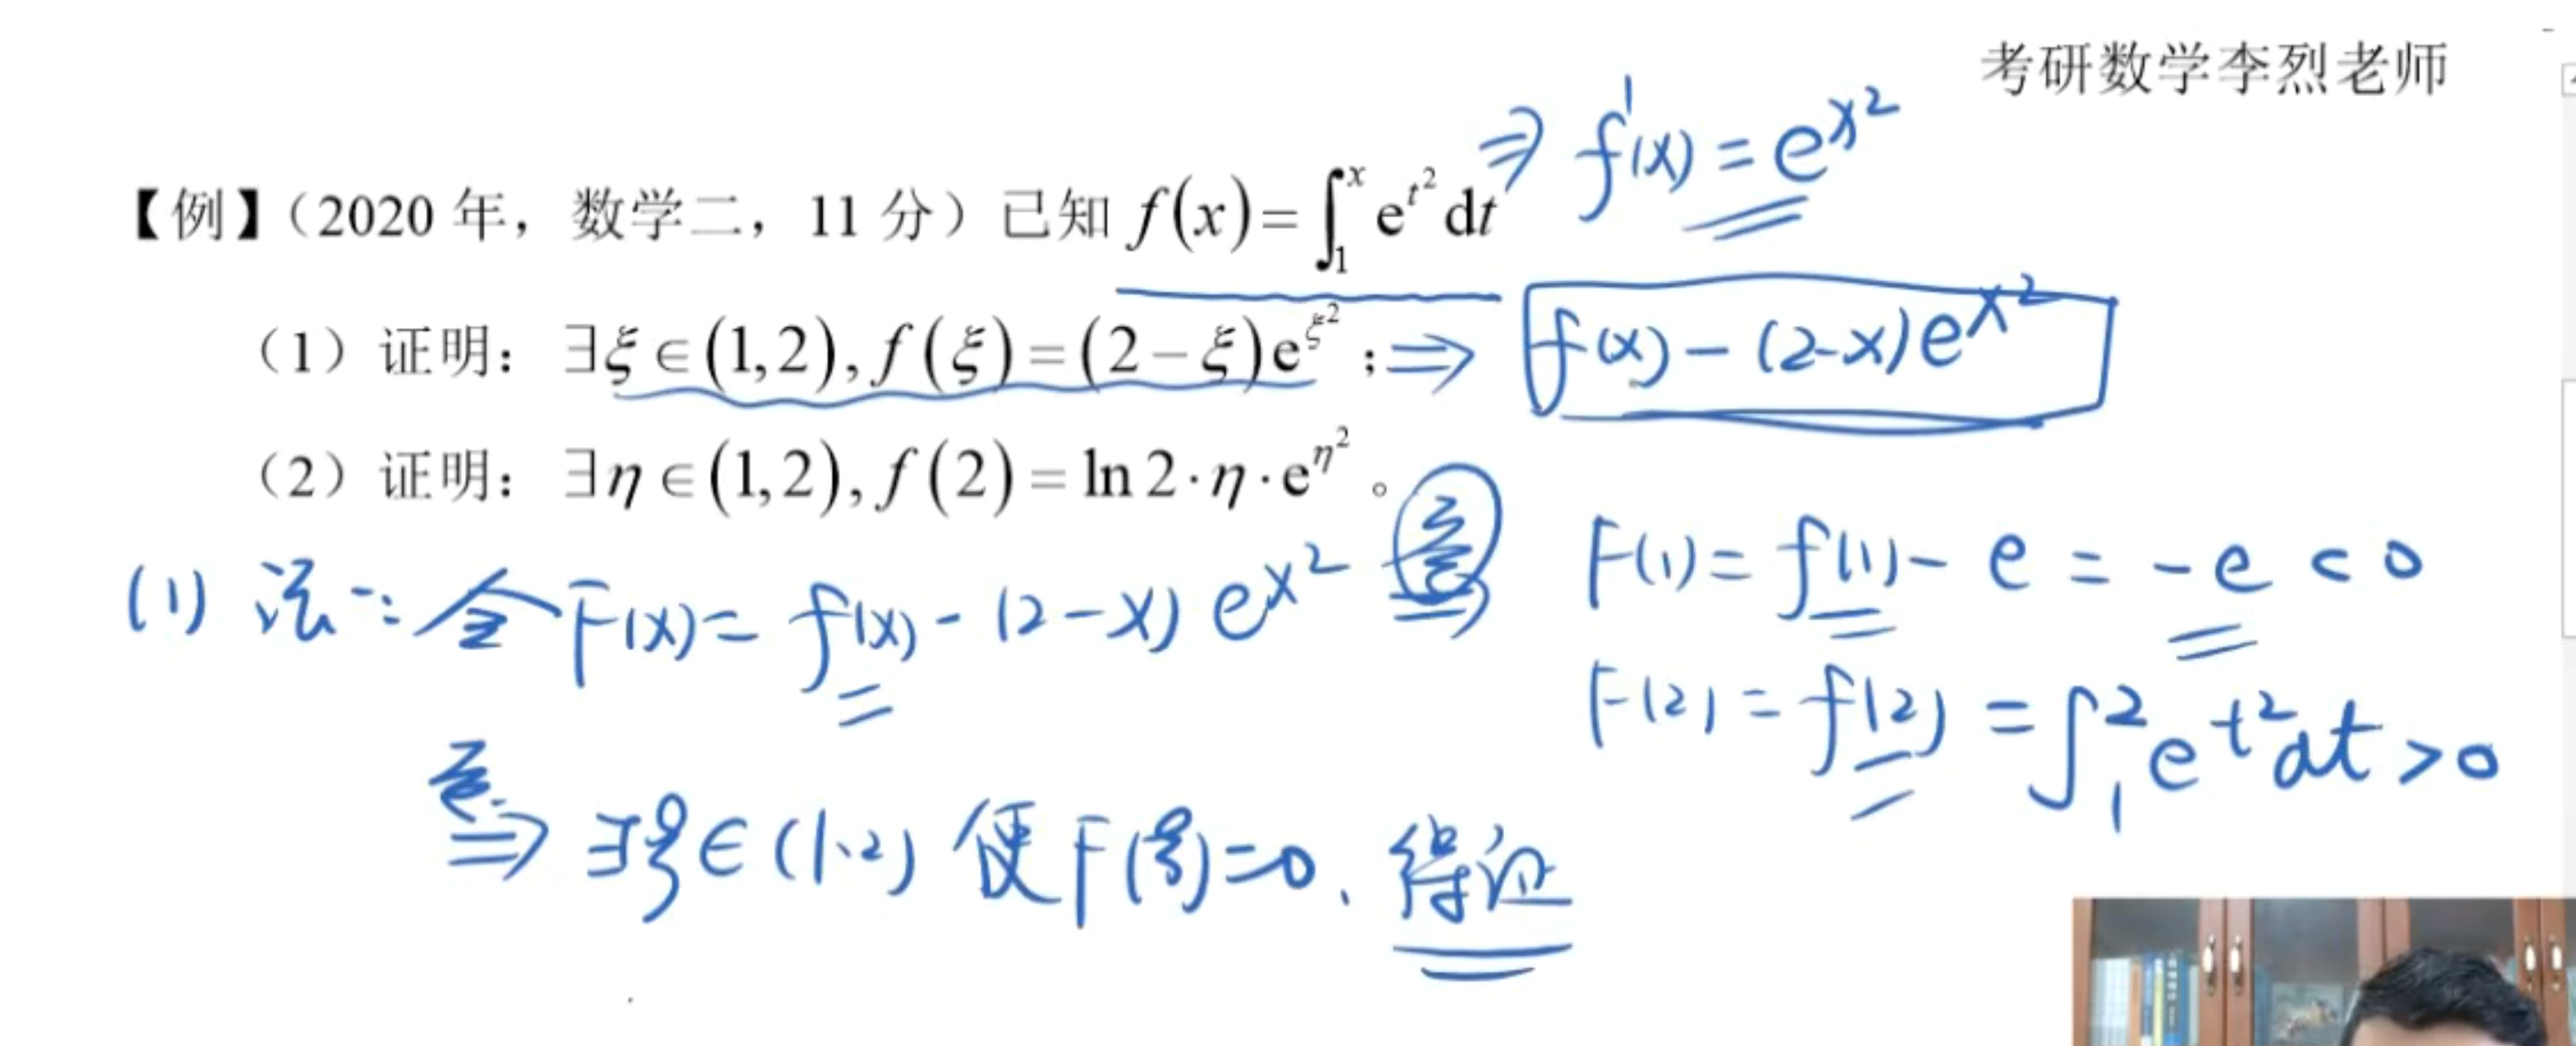 考研数学李烈老师
⇒ f'(x) = e^{x^2}
【例】（2020 年，数学二，11 分）已知 f(x)=∫_1^x e^{t^2} dt
（1）证明：∃ξ∈(1,2), f(ξ)=(2−ξ)e^{ξ^2}；⇒ f(x) − (2-x)e^{x^2}
（2）证明：∃η∈(1,2), f(2)=ln 2·η·e^{η^2}。
(1) 法一: 令 F(x) = f(x) - (2-x) e^{x^2} ⇒ F(1) = f(1) - e = -e < 0
F(2) = f(2) = ∫_1^2 e^{t^2} dt > 0
⇒ ∃ξ∈(1,2) 使F(ξ)=0、得证